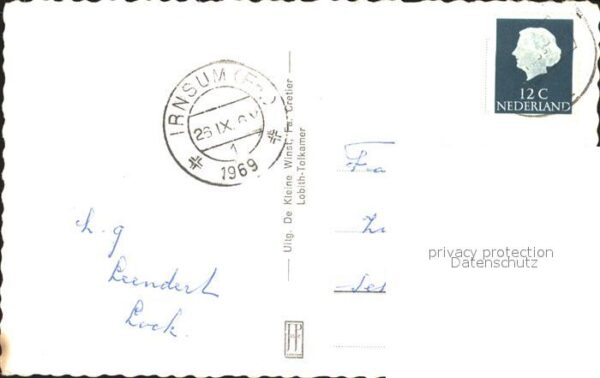 12 C
NEDERLAND
IRNSUM (Fr.)
26 IX
1
1969
Uitg. De Kleine Winst, Fa. Cretier
Lobith-Tolkamer
h.g
Leendert
Look.
Fra
privacy protection
Datenschutz